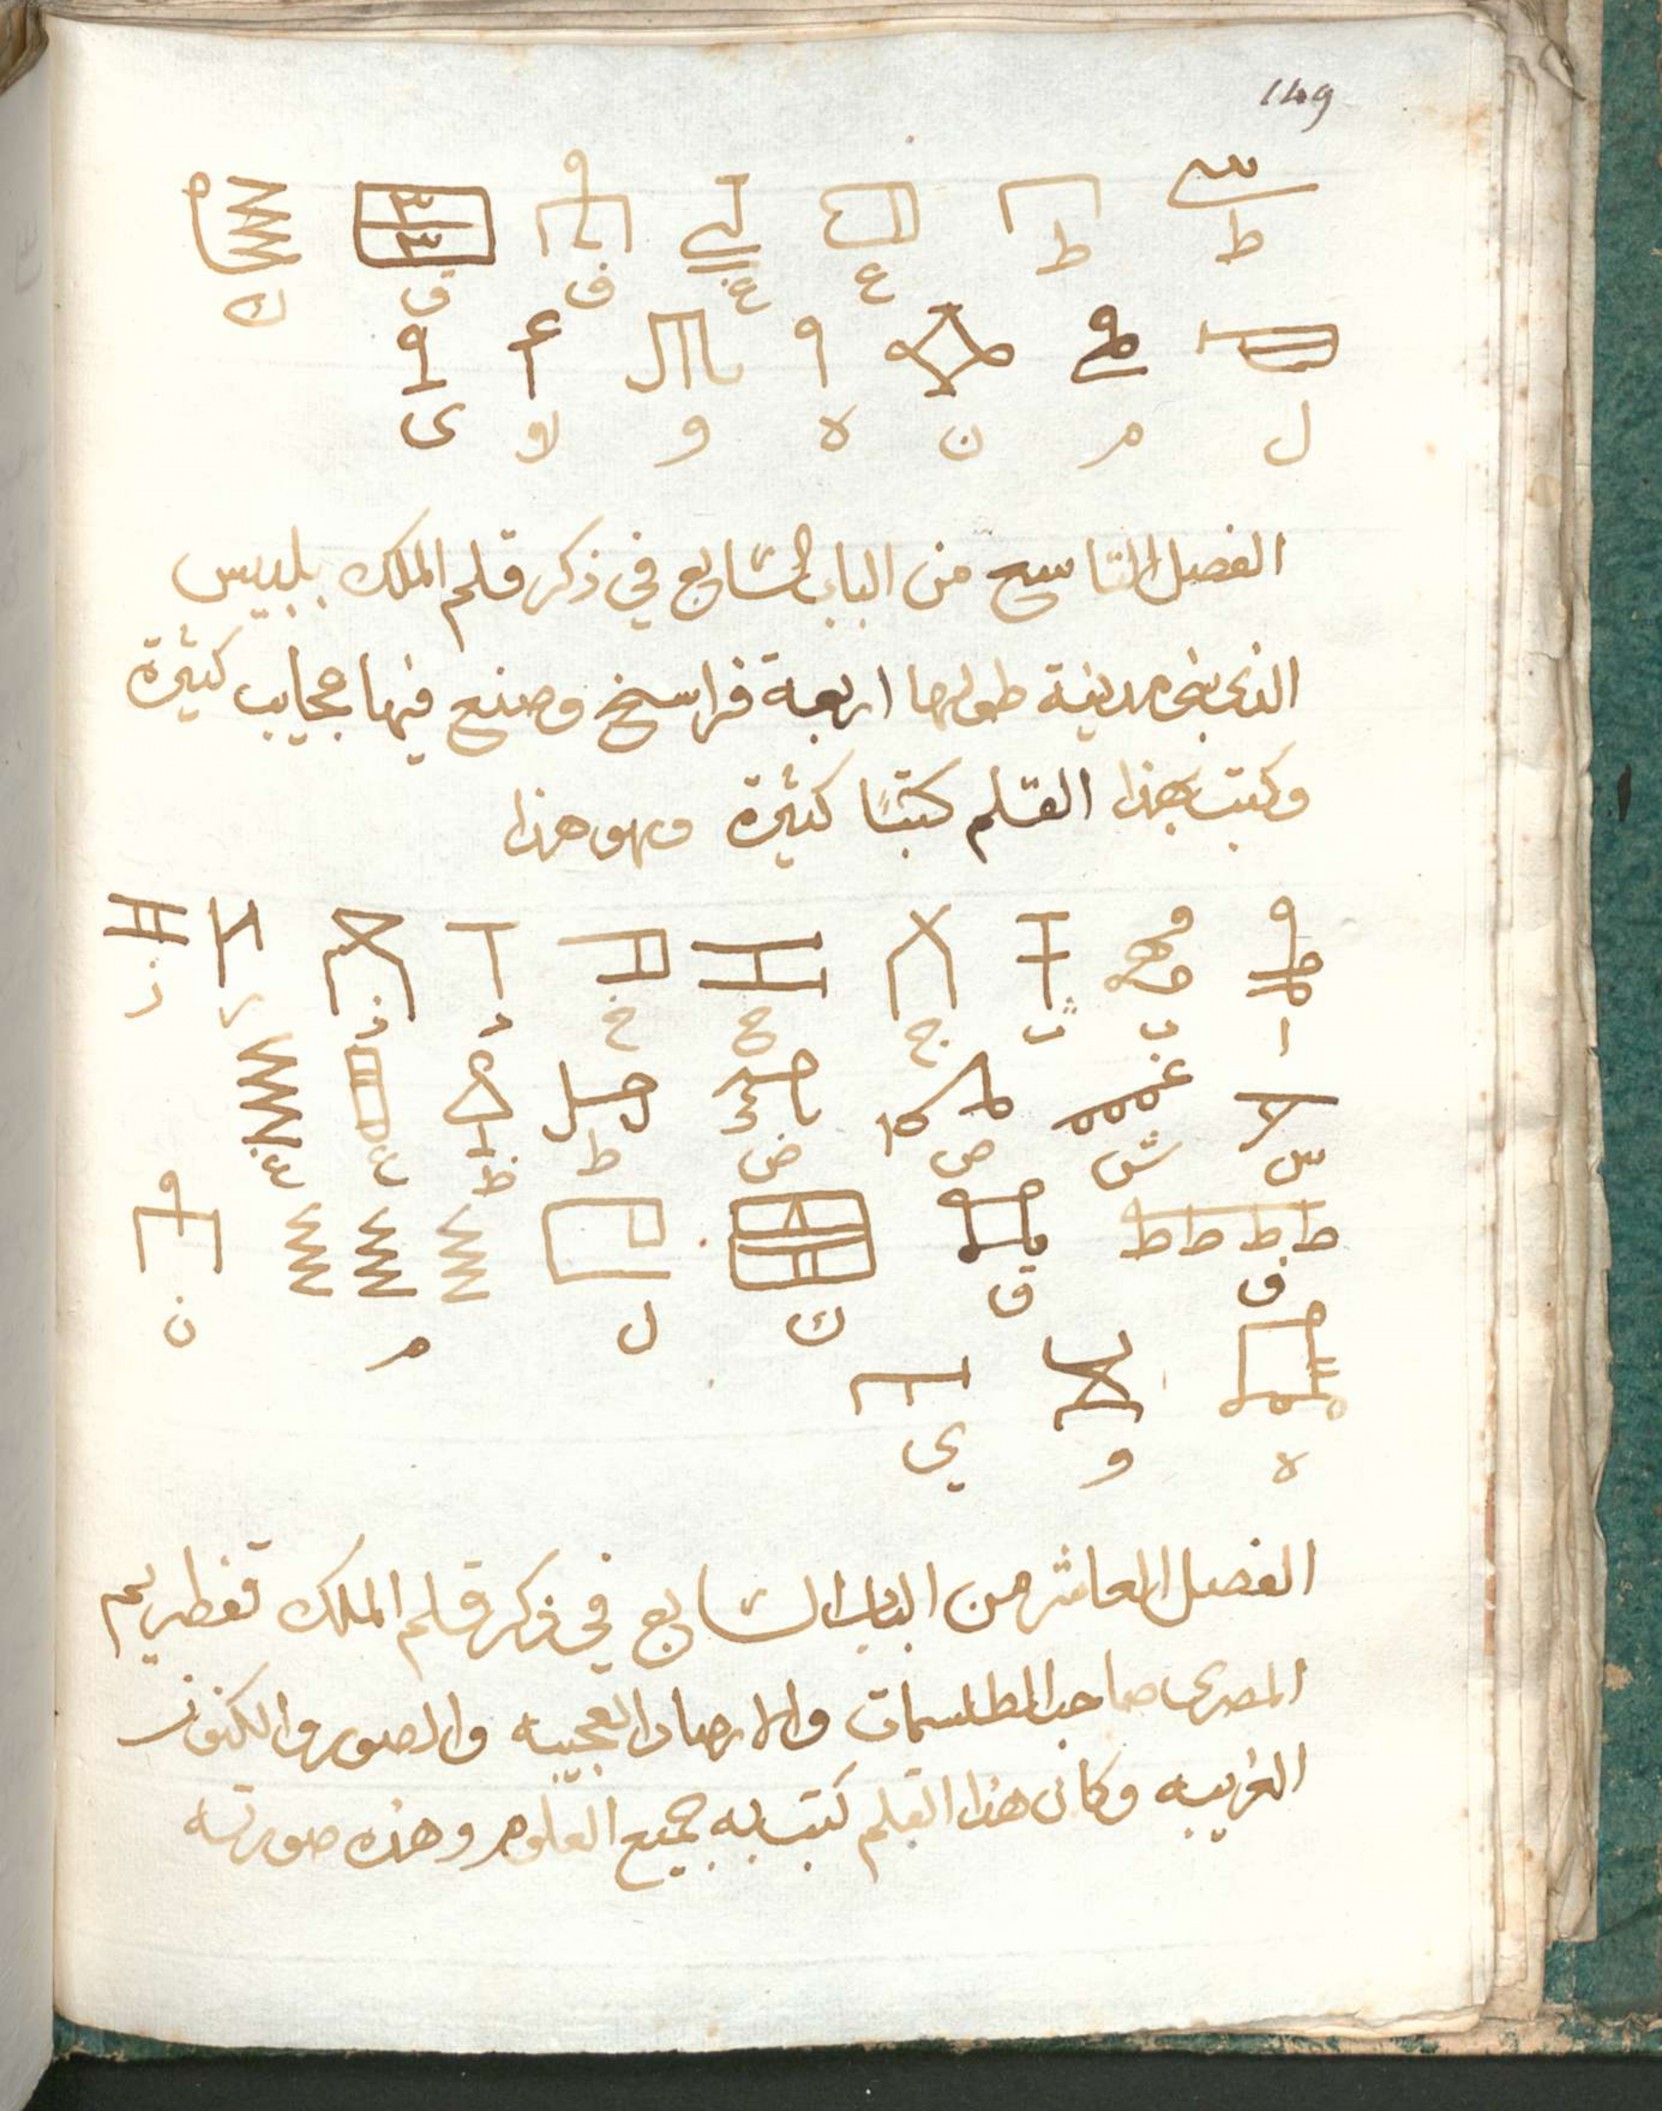 149
ط ط ع غ ف ق ك
ل م ن ه و لا ى
الفصل التاسع من الباب السابع في ذكر قلم الملك بلبيس
الذى بنى مدينة طولها اربعة فراسخ وصنع فيها عجايب كثيرة
وكتب بهذا القلم كتبًا كثيرة وهو هذا
ا ب ت ج ح خ د ذ ر ز
س ش ص ض ط ظ ع غ
ف ق ك ل م ن
ه و ي
الفصل العاشر من الباب السابع في ذكر قلم الملك قفطريم
المصرى صاحب الطلسمات والارصاد العجيبه والصور والكنوز
الغريبه وكان هذا القلم كتب به جميع العلوم وهذه صورته